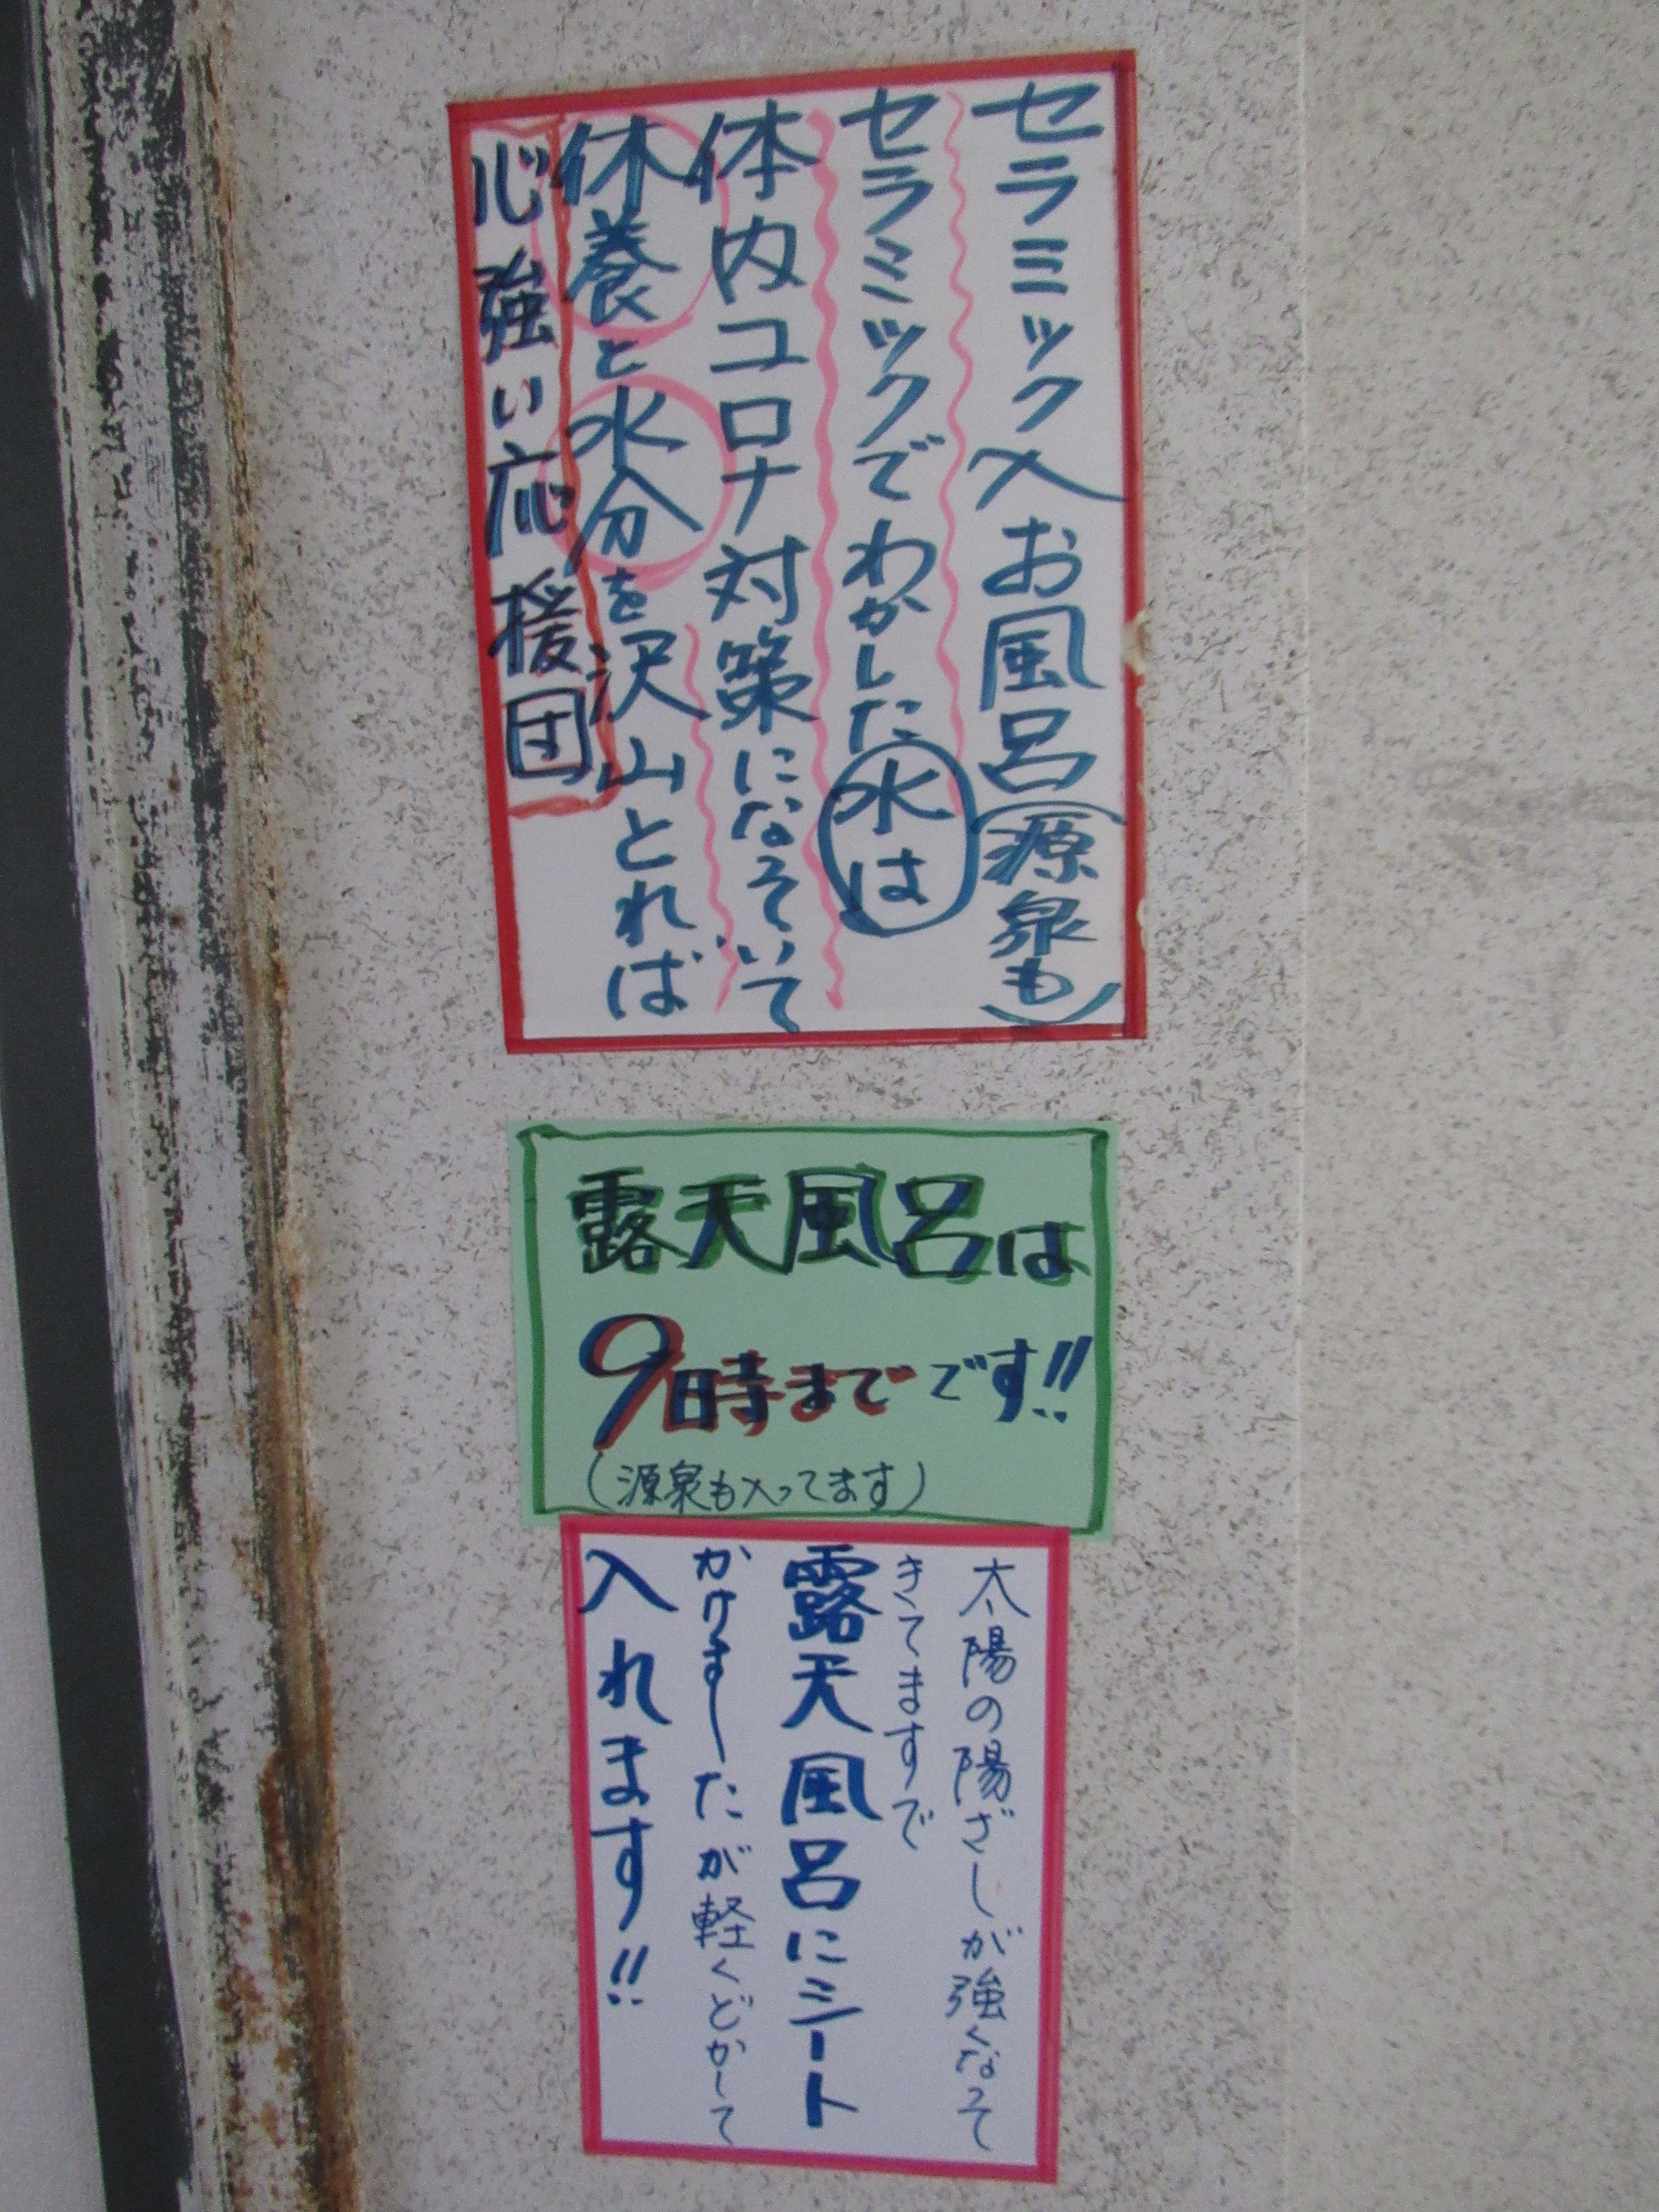 セラミック入お風呂(源泉も)
セラミックでわかした水は
体内コロナ対策になっていて
休養と水分を沢山とれば
心強い応援団
露天風呂は
9時までです!!
(源泉も入ってます)
太陽の陽ざしが強くなって
きてますで
露天風呂にシート
かけましたが軽くどかして
入れます!!